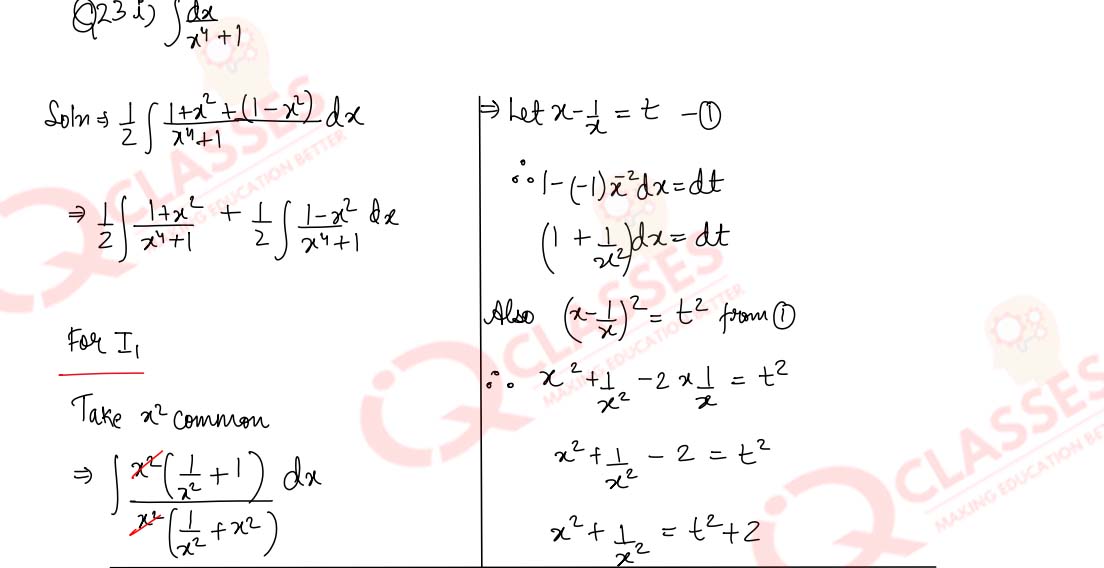 Q23 i) ∫ dx/(x⁴+1)
Soln ⇒ 1/2 ∫ (1+x²+(1-x²))/(x⁴+1) dx
⇒ 1/2 ∫ (1+x²)/(x⁴+1) + 1/2 ∫ (1-x²)/(x⁴+1) dx
For I₁
Take x² common
⇒ ∫ x²(1/x² + 1)/x²(1/x² + x²) dx
⇒ Let x - 1/x = t —①
∴ 1-(-1)x⁻²dx = dt
(1 + 1/x²)dx = dt
Also (x - 1/x)² = t² from ①
∴ x² + 1/x² - 2 x 1/x = t²
x² + 1/x² - 2 = t²
x² + 1/x² = t² + 2
IQ CLASSES
MAKING EDUCATION BETTER
IQ CLASSES
MAKING EDUCATION BETTER
IQ CLASSES
MAKING EDUCATION BETTER